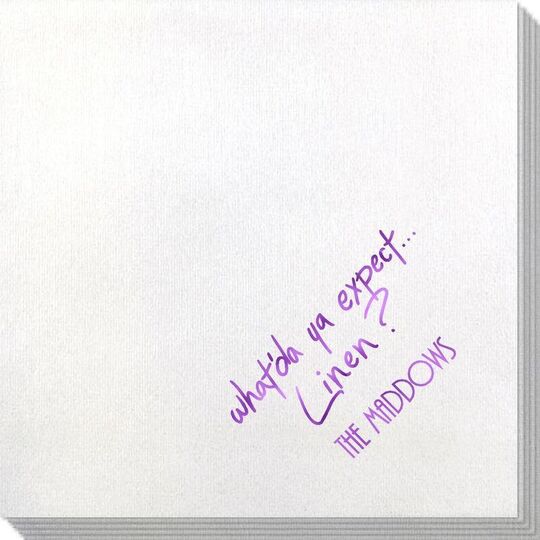 what'da ya expect...
Linen?
THE MADDOWS